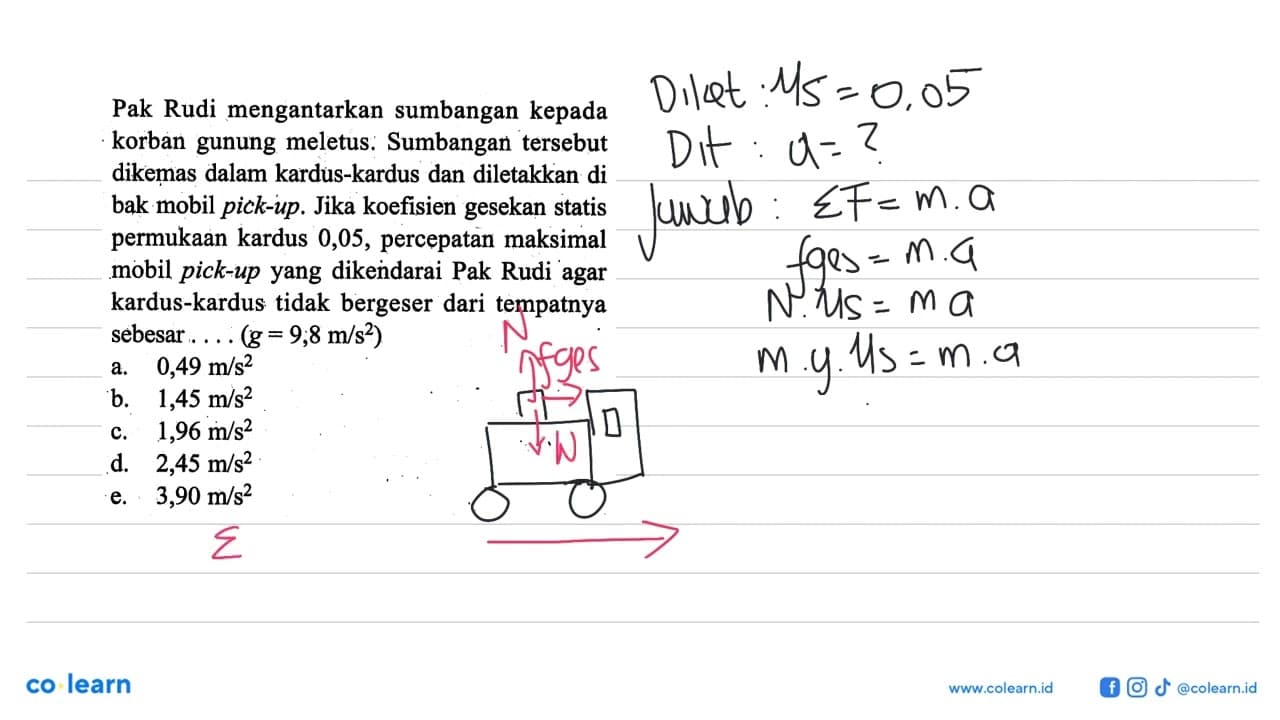 Pak Rudi mengantarkan sumbangan kepada
korban gunung meletus. Sumbangan tersebut
dikemas dalam kardus-kardus dan diletakkan di
bak mobil pick-up. Jika koefisien gesekan statis
permukaan kardus 0,05, percepatan maksimal
mobil pick-up yang dikendarai Pak Rudi agar
kardus-kardus tidak bergeser dari tempatnya
sebesar . . . . (g = 9,8 m/s²)
a. 0,49 m/s²
b. 1,45 m/s²
c. 1,96 m/s²
d. 2,45 m/s²
e. 3,90 m/s²
Σ
N
fges
W
Diket : μs = 0,05
Dit : a = ?
Jawab : ΣF = m.a
fges = m.a
N.μs = m a
m.g.μs = m.a
co learn
www.colearn.id
@colearn.id